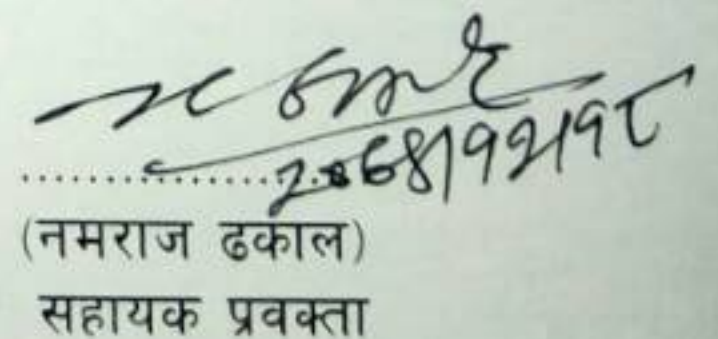 २०६८/१२/१८
(नमराज ढकाल)
सहायक प्रवक्ता